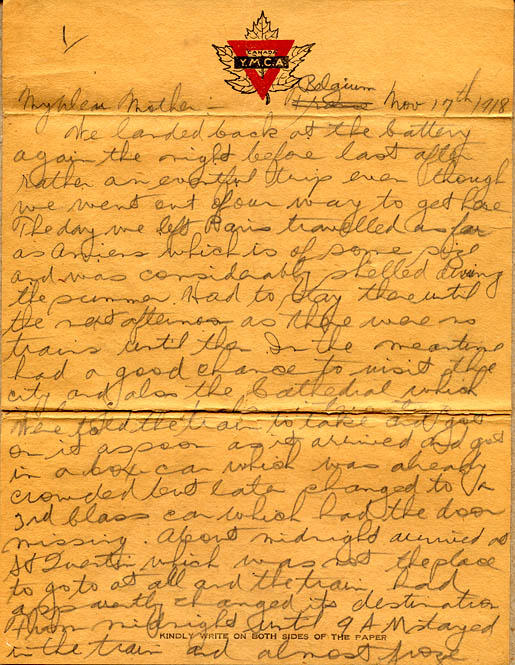 CANADA
Y.M.C.A.
Belgium
My Dear Mother - Nov 17th, 1918
We landed back at the battery
again the night before last after
rather an eventful trip even though
we went out of our way to get here
The day we left Paris travelled as far
as Amiens which is of some size
and was considerably shelled during
the summer. Had to stay there until
the next afternoon as there were no
trains until then. In the meantime
had a good chance to visit the
city and also the Cathedral which
Were told the train to take and got
on it as soon as it arrived and got
in a box car which was already
crowded but later changed to a
3rd Class car which had the door
missing. About midnight arrived at
St Quentin which was not the place
to go to at all and the train had
apparently changed its destination
From midnight until 9 A.M. stayed
in the train and almost froze
KINDLY WRITE ON BOTH SIDES OF THE PAPER